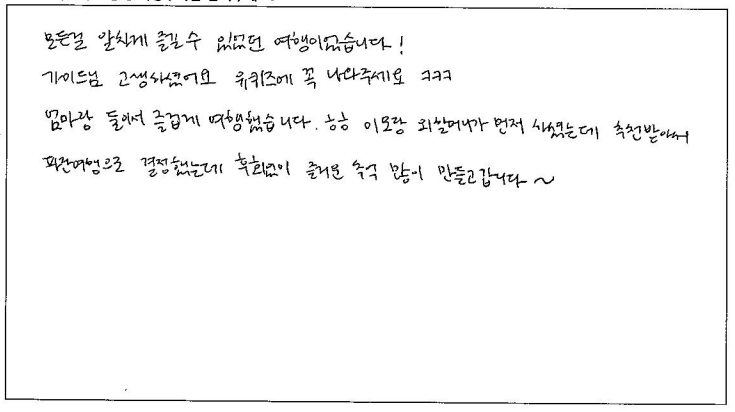 모든걸 알차게 즐길 수 있었던 여행이었습니다!
가이드님 고생하셨어요 유퀴즈에 꼭 나와주세요 ㅋㅋㅋ
엄마랑 둘이서 즐겁게 여행했습니다. ㅎㅎ 이모랑 외할머니가 먼저 하셨는데 추천받아서
패키지여행으로 결정했는데 후회없이 즐거운 추억 많이 만들고갑니다~